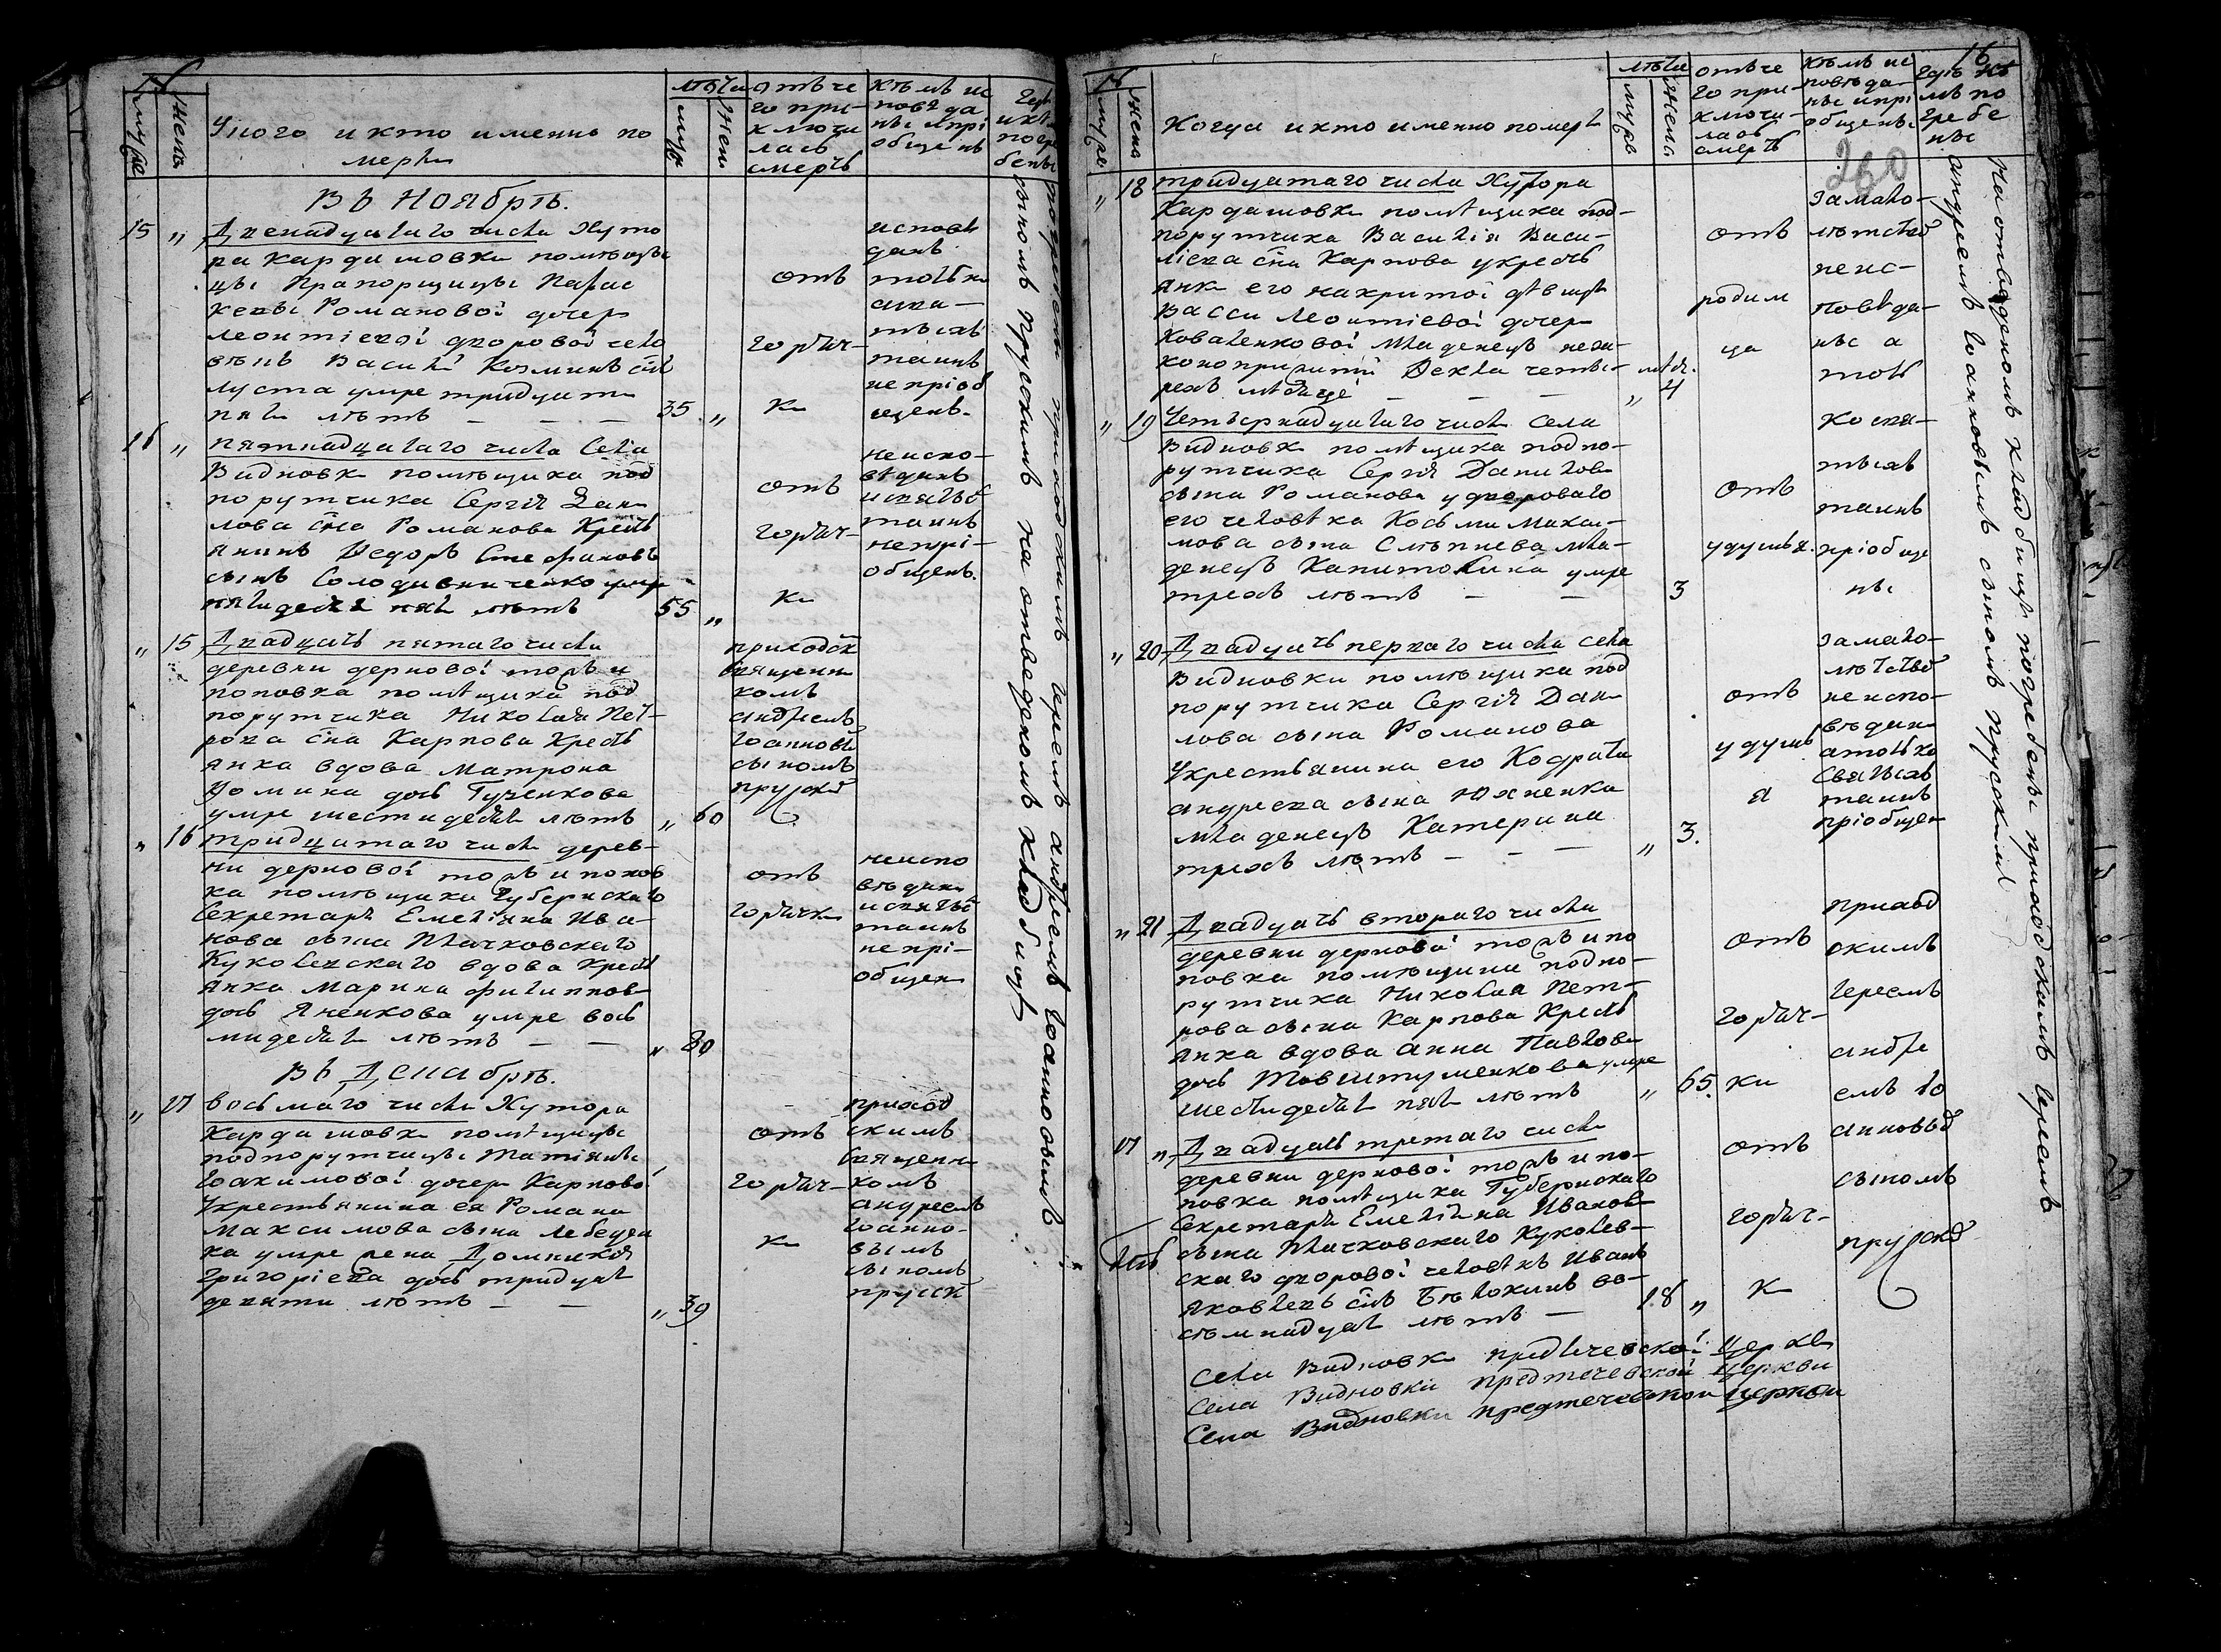 муже
женъ
У ного и кто именно по
мерли
лѣта
муж
жен
отъ че
го при-
ключи
лась
смерть
кѣмъ ис
повѣда
ны и прі
общены
погре
бены
Въ Ноябрѣ.
15 „ Двенадцатаго числа Хуто
ра Кардашовки помѣщи
цы Прапорщицы Парас
кевы Романовой дочери
Леонтіевой дворовой чело
вѣкъ Василій Козминъ сінъ
луста умре тридцати
пяти лѣтъ — — — 35 „
отъ
горяч-
ки
исповѣ
данъ
только
свя-
тыхъ
таинъ
не пріоб
щенъ.
16 „ пятнадцатаго числа Села
Видновки помѣщика под
порутчика Сергія Дани
лова сна Романова Крестъ
янинъ Ѳедоръ Стефановъ
сынъ Солодивниченко умре
пятидесяти пяти лѣтъ 55 „
отъ
горяч-
ки
неиспо-
вѣданъ
и святыхъ
таинъ
непрі-
общенъ.
„ 15 Двадцать пятаго числа
деревни дерновой тожъ и
поповка помѣщика под
порутчика Николая Пет-
рова сна Карпова Кресть
янка вдова Матрона
Ѳомина дочь Гученкова
умре шестидесяти лѣтъ „ 60
приходск
священни
комъ
андреемъ
Іоанновы
сыномъ
прускі
„ 16 тридцатаго числа дерев-
ни дерновой тожъ и попов
ка помѣщика Губернскаго
Секретаря Емеліяна Ива-
нова сына Плачковскаго
Куколевскаго вдова Кресть
янка Марина филиппов
дочь Яченкова умре вось
мидесяти лѣтъ — — „ 80
отъ
горячки
неиспо
вѣдана
и святыхъ
таинъ
непрі-
общен
Въ Декабрѣ.
„ 17 Восьмаго числа Хутора
Кардашовки помѣщицы
подпорутчицы Татіяны
Іоакимовой дочери Карповой
Укрестьянина ея Романа
Максимова сына Лебеден
ка умре жена Домникія
Григоріева дочь тридцать
девяти лѣтъ — — „ 39
отъ
горяч-
ки
приход
скимъ
священни
комъ
андреемъ
Іоанно-
вымъ
сыномъ
пруск
погребены приходскимъ іереемъ андреемъ Іоанновымъ
сыномъ прускимъ на отведеномъ кладбищѣ
16
муже
жена
Когда и кто именно померъ
лѣта
мужъ
женъ
отъ че
го при-
ключи-
лась
смерть
кѣмъ ис
повѣда-
ны и прі
общены
Гдѣ и кѣ
мъ по
гребе
ны
260
„ 18 тридцатаго числа Хутора
Кардашовки помѣщика под-
порутчика Василія Васи-
ліева сна Карпова укресть
янки его накритой дѣвицы
Васси Леонтіевой дочери
Коваленковой младенецъ неза-
коноприжитій Ѳекла четы-
рехъ мѣсяцей — — — „ мѣся. 4
отъ
родим
ца
За мало-
лѣтств
неис-
повѣда-
ны а
толь
ко свя-
тыхъ
таинъ
пріобще
ны
„ 19 Четвернадцатаго числа Села
Видновки помѣщика подпо-
рутчика Сергія Данилова
сына Романова удворового
его человѣка Косьми Макси-
мова сына Слѣпнева мла-
денецъ Капитолина умре
трехъ лѣтъ — — 3
отъ
удушья.
„ 20 Двадцать первого числа Села
Видновки помѣщика под
порутчика Сергія Дани
лова сына Романова
Укрестьянина его Кодрата
андреева сына Юхненка
младенецъ Катерина
трехъ лѣтъ — — — „ 3.
отъ
удушь
я
За мало-
лѣтство
неиспо-
вѣдана
а только
Святыхъ
таинъ
пріобщен
„ 21 Двадцать втораго числа
деревни дерновой тожъ и по
повка помѣщика подпо-
рутчика Николая Пет-
рова сына Карпова Кресть
янка вдова анна Павлова
дочь Товштушенкова умре
шестидесяти пяти лѣтъ „ 65.
отъ
горяч-
ки
приход
скимъ
іереемъ
андре
емъ Іо
анновым
сыномъ
прускі
17 „ Двадцать третаго числа
деревни дерновой тожъ и по-
повка помѣщика Губернскаго
Секретаря Емеліяна Иванов
сына Плачковскаго Куколев-
скаго дворовой человѣкъ Иванъ
Яковлевъ снъ Бѣлокинъ во-
сѣмнадцать лѣтъ — 18 „
отъ
горяч-
ки
На отведеномъ кладбищѣ погребены приходскимъ іереемъ
андреемъ Іоанновымъ сыномъ прускимъ
Села Видновки предтечевской Церкви
Села Видновки предтечевской Церкви
Села Видновки предтечевской Церкви